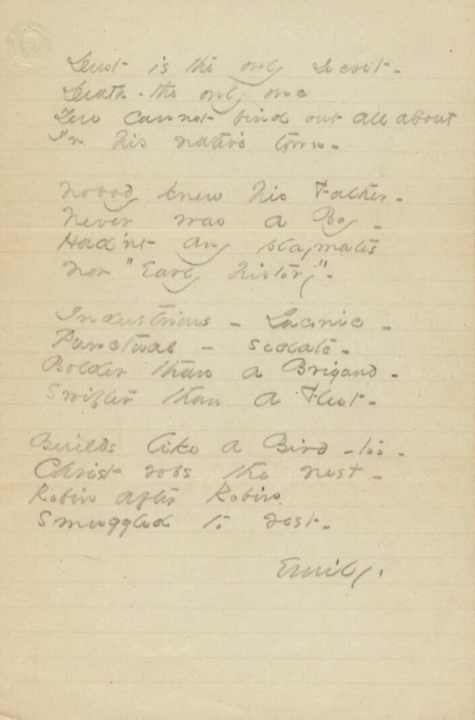 Dust is the only Secret -
Death - the only one
You cannot find out all about
In his native town -
Nobody knew his Father -
Never was a Boy -
Had'nt any playmates
Nor "Early history" -
Industrious - Laconic -
Punctual - sedate -
Bolder than a Brigand -
Swifter than a Fleet -
Builds like a Bird - too -
Christ robs the nest -
Robin after Robin
Smuggled to rest -
Emily.